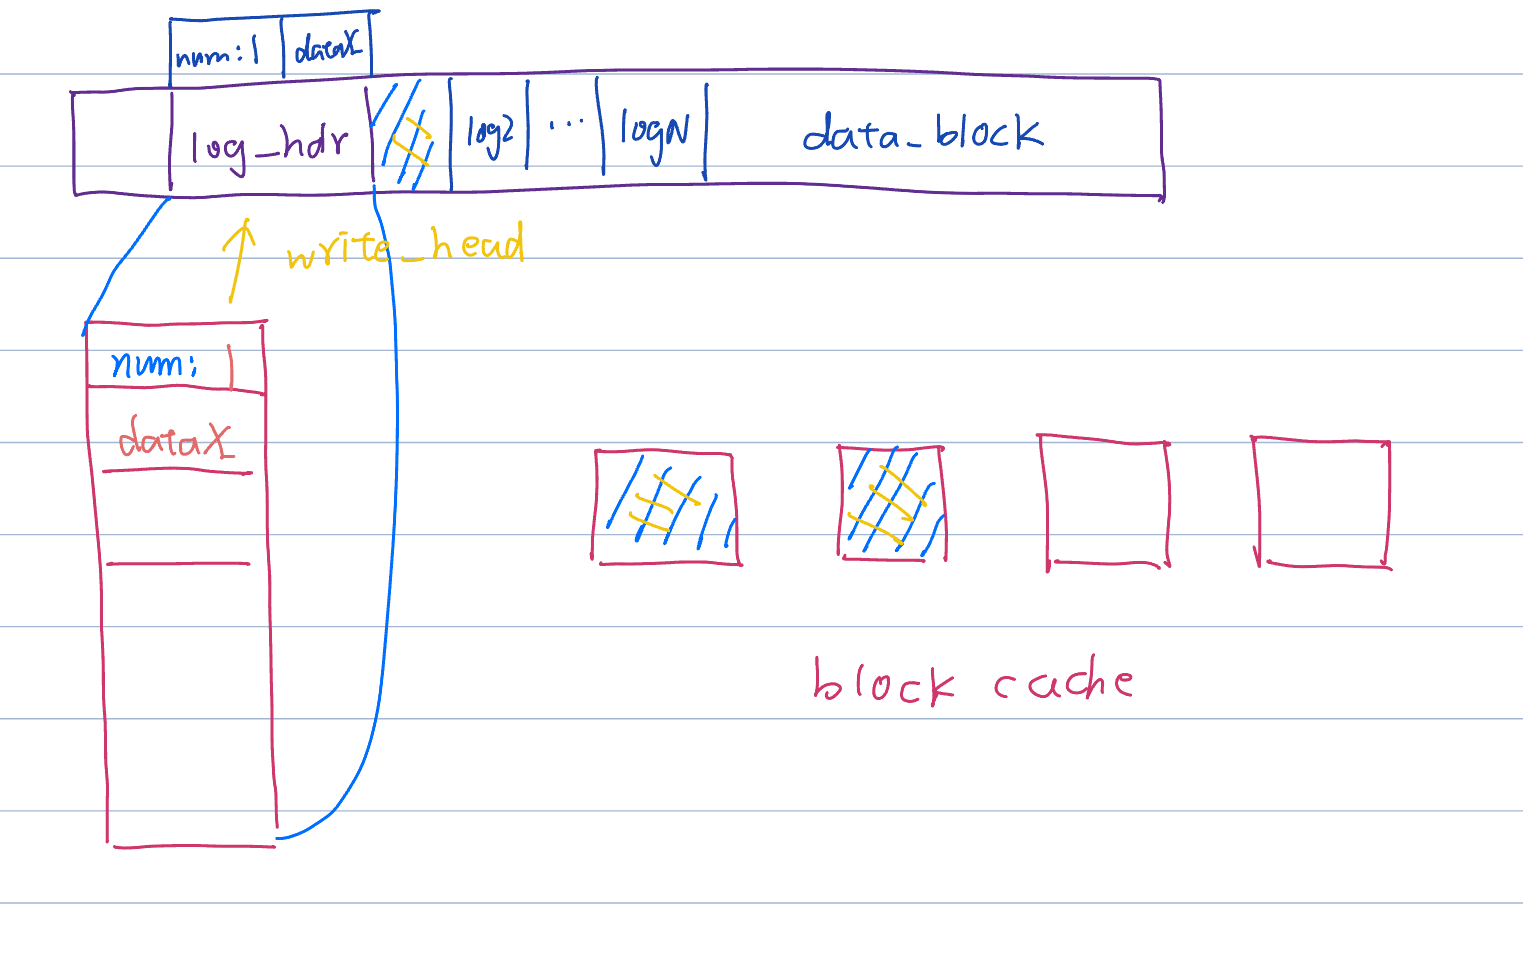 num:1 dataX
log_hdr log2 ... logN data_block
write_head
num: 1
dataX
block cache